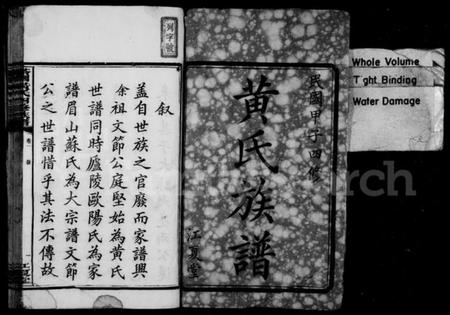 民國甲子四修
黄氏族譜
江夏堂
Whole Volume
Tight Binding
Water Damage
叙
蓋自世族之官廢而家譜興
余祖文節公庭堅始為黄氏
世譜同時廬陵歐陽氏為家
譜眉山蘇氏為大宗譜文節
公之世譜惜乎其法不傳故